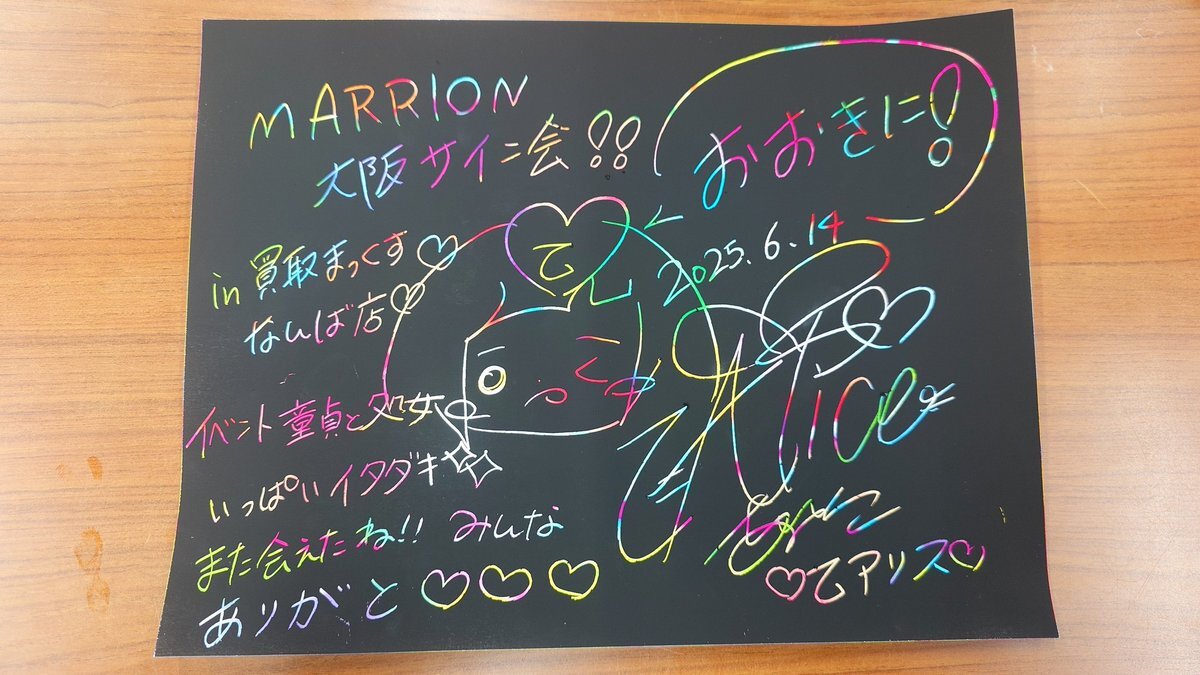 MARRION
大阪サイン会!!
おおきに!
in 買取まっくす♡
なんば店♡
乙
2025.6.14
イベント童貞と処女
いっぱいイタダキ
また会えたね!! みんな
ありがと♡♡♡
Alice
♡乙アリス♡